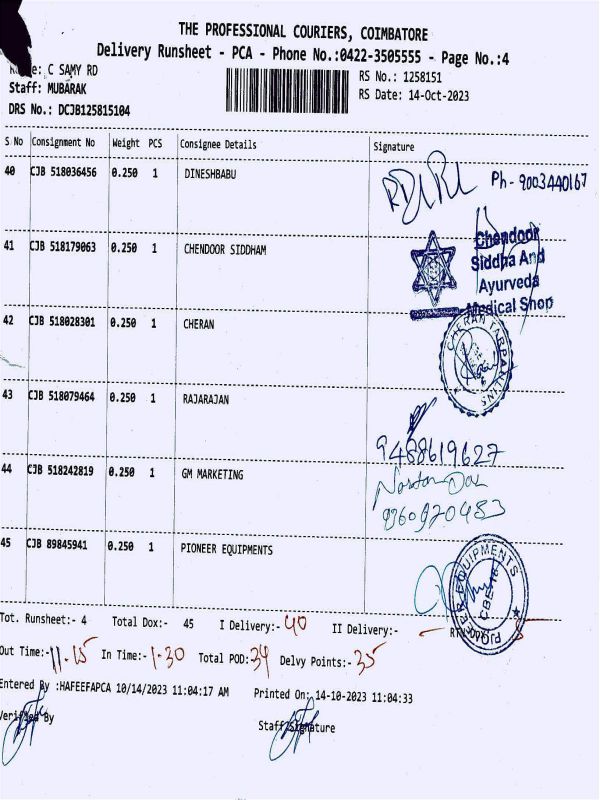 THE PROFESSIONAL COURIERS, COIMBATORE
Delivery Runsheet - PCA - Phone No.:0422-3505555 - Page No.:4
C SAMY RD RS No.: 1258151
Staff: MUBARAK RS Date: 14-Oct-2023
DRS No.: DCJB125815104
S No Consignment No Weight PCS Consignee Details Signature
40 CJB 518036456 0.250 1 DINESHBABU Ph - 9003440167
41 CJB 518179063 0.250 1 CHENDOOR SIDDHAM
Chendoor
Siddha And
Ayurveda
Medical Shop
42 CJB 518028301 0.250 1 CHERAN
CHERAN TARPAULINS
43 CJB 518079464 0.250 1 RAJARAJAN
9488619627
44 CJB 518242819 0.250 1 GM MARKETING
9360920483
45 CJB 89845941 0.250 1 PIONEER EQUIPMENTS
PIONEER EQUIPMENTS
CBE-18
Tot. Runsheet:- 4 Total Dox:- 45 I Delivery:- 40 II Delivery:- -
Out Time:- 11.15 In Time:- 1.30 Total POD: 34 Delvy Points:- 35
Entered By :HAFEEFAPCA 10/14/2023 11:04:17 AM Printed On: 14-10-2023 11:04:33
Verified By Staff Signature